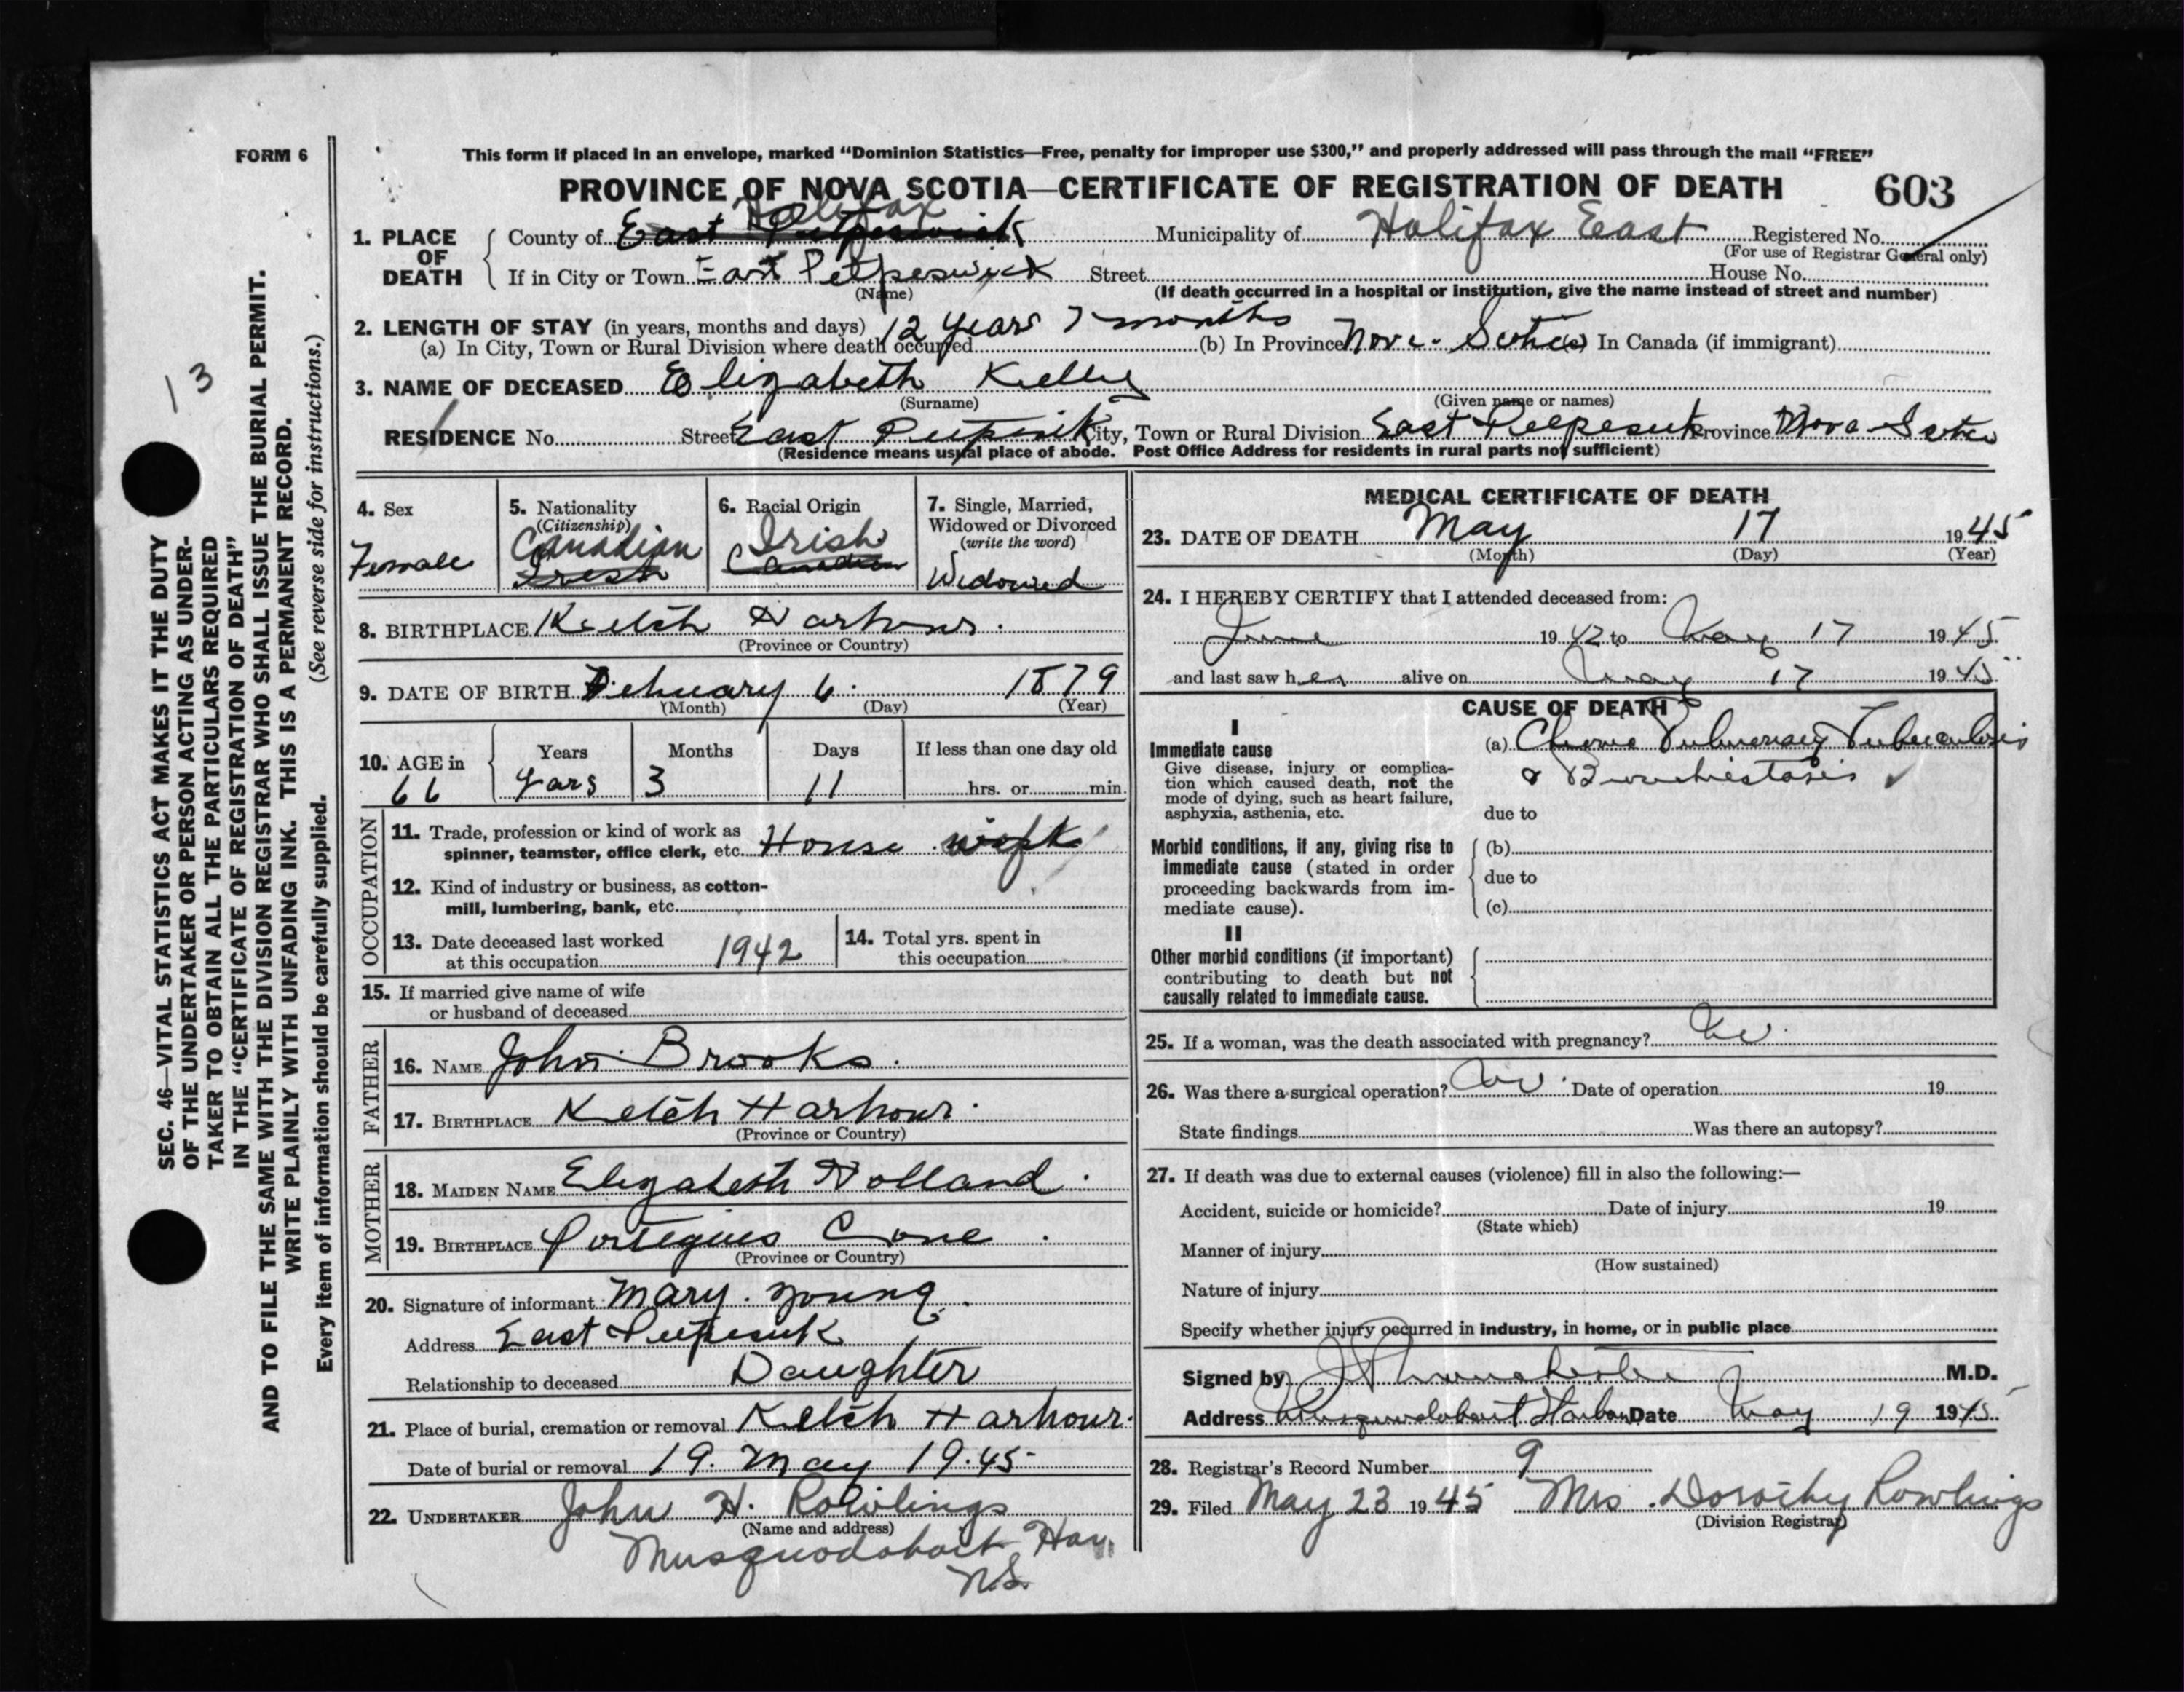 FORM 6
This form if placed in an envelope, marked “Dominion Statistics—Free, penalty for improper use $300,” and properly addressed will pass through the mail “FREE”
PROVINCE OF NOVA SCOTIA—CERTIFICATE OF REGISTRATION OF DEATH 603
Halifax
1. PLACE OF DEATH County of East Petpeswick Municipality of Halifax East Registered No.
(For use of Registrar General only)
If in City or Town East Petpeswick Street House No.
(Name) (If death occurred in a hospital or institution, give the name instead of street and number)
2. LENGTH OF STAY (in years, months and days) 12 years 7 months
(a) In City, Town or Rural Division where death occurred (b) In Province Nova Scotia (c) In Canada (if immigrant)
3. NAME OF DECEASED Elizabeth Kelly
(Surname) (Given name or names)
RESIDENCE No. Street East City, Town or Rural Division East Province Nova Scotia
(Residence means usual place of abode. Post Office Address for residents in rural parts not sufficient)
13
SEC. 46—VITAL STATISTICS ACT MAKES IT THE DUTY
OF THE UNDERTAKER OR PERSON ACTING AS UNDER-
TAKER TO OBTAIN ALL THE PARTICULARS REQUIRED
IN THE “CERTIFICATE OF REGISTRATION OF DEATH”
AND TO FILE THE SAME WITH THE DIVISION REGISTRAR WHO SHALL ISSUE THE BURIAL PERMIT.
WRITE PLAINLY WITH UNFADING INK. THIS IS A PERMANENT RECORD.
Every item of information should be carefully supplied. (See reverse side for instructions.)
4. Sex
Female
5. Nationality
(Citizenship)
Canadian
Irish
6. Racial Origin
Irish
Canadian
7. Single, Married,
Widowed or Divorced
(write the word)
Widowed
8. BIRTHPLACE Ketch Harbour.
(Province or Country)
9. DATE OF BIRTH Febuary 6. 1879
(Month) (Day) (Year)
10. AGE in Years Months Days If less than one day old
66 Years 3 11 hrs. or min.
OCCUPATION
11. Trade, profession or kind of work as
spinner, teamster, office clerk, etc. House
12. Kind of industry or business, as cotton-
mill, lumbering, bank, etc.
13. Date deceased last worked
at this occupation 1942
14. Total yrs. spent in
this occupation
15. If married give name of wife
or husband of deceased
FATHER
16. NAME John Brooks.
17. BIRTHPLACE Ketch Harbour.
(Province or Country)
MOTHER
18. MAIDEN NAME Elizabeth Holland.
19. BIRTHPLACE Portegues Cove.
(Province or Country)
20. Signature of informant Mary. Young.
Address East
Relationship to deceased Daughter
21. Place of burial, cremation or removal Ketch Harbour.
Date of burial or removal 19. May 19.45
22. UNDERTAKER John H. Rowlings
(Name and address)
Musquodoboit Har.
N.S.
MEDICAL CERTIFICATE OF DEATH
23. DATE OF DEATH May 17 1945
(Month) (Day) (Year)
24. I HEREBY CERTIFY that I attended deceased from:
June 1942 to May 17 1945
and last saw her alive on May 17 1945
CAUSE OF DEATH
I
Immediate cause
Give disease, injury or complica-
tion which caused death, not the
mode of dying, such as heart failure,
asphyxia, asthenia, etc.
(a) Chronic Pulmonary Tuberculosis
& Bronchiestasis
due to
Morbid conditions, if any, giving rise to
immediate cause (stated in order
proceeding backwards from im-
mediate cause).
(b)
due to
(c)
II
Other morbid conditions (if important)
contributing to death but not
causally related to immediate cause.
25. If a woman, was the death associated with pregnancy? No.
26. Was there a surgical operation? No. Date of operation 19
State findings Was there an autopsy?
27. If death was due to external causes (violence) fill in also the following:—
Accident, suicide or homicide? Date of injury 19
(State which)
Manner of injury
(How sustained)
Nature of injury
Specify whether injury occurred in industry, in home, or in public place
Signed by M.D.
Address Musquodoboit Harbour Date May 19 1945
28. Registrar's Record Number 9
29. Filed May 23 1945 Mrs. Dorothy Rowlings
(Division Registrar)